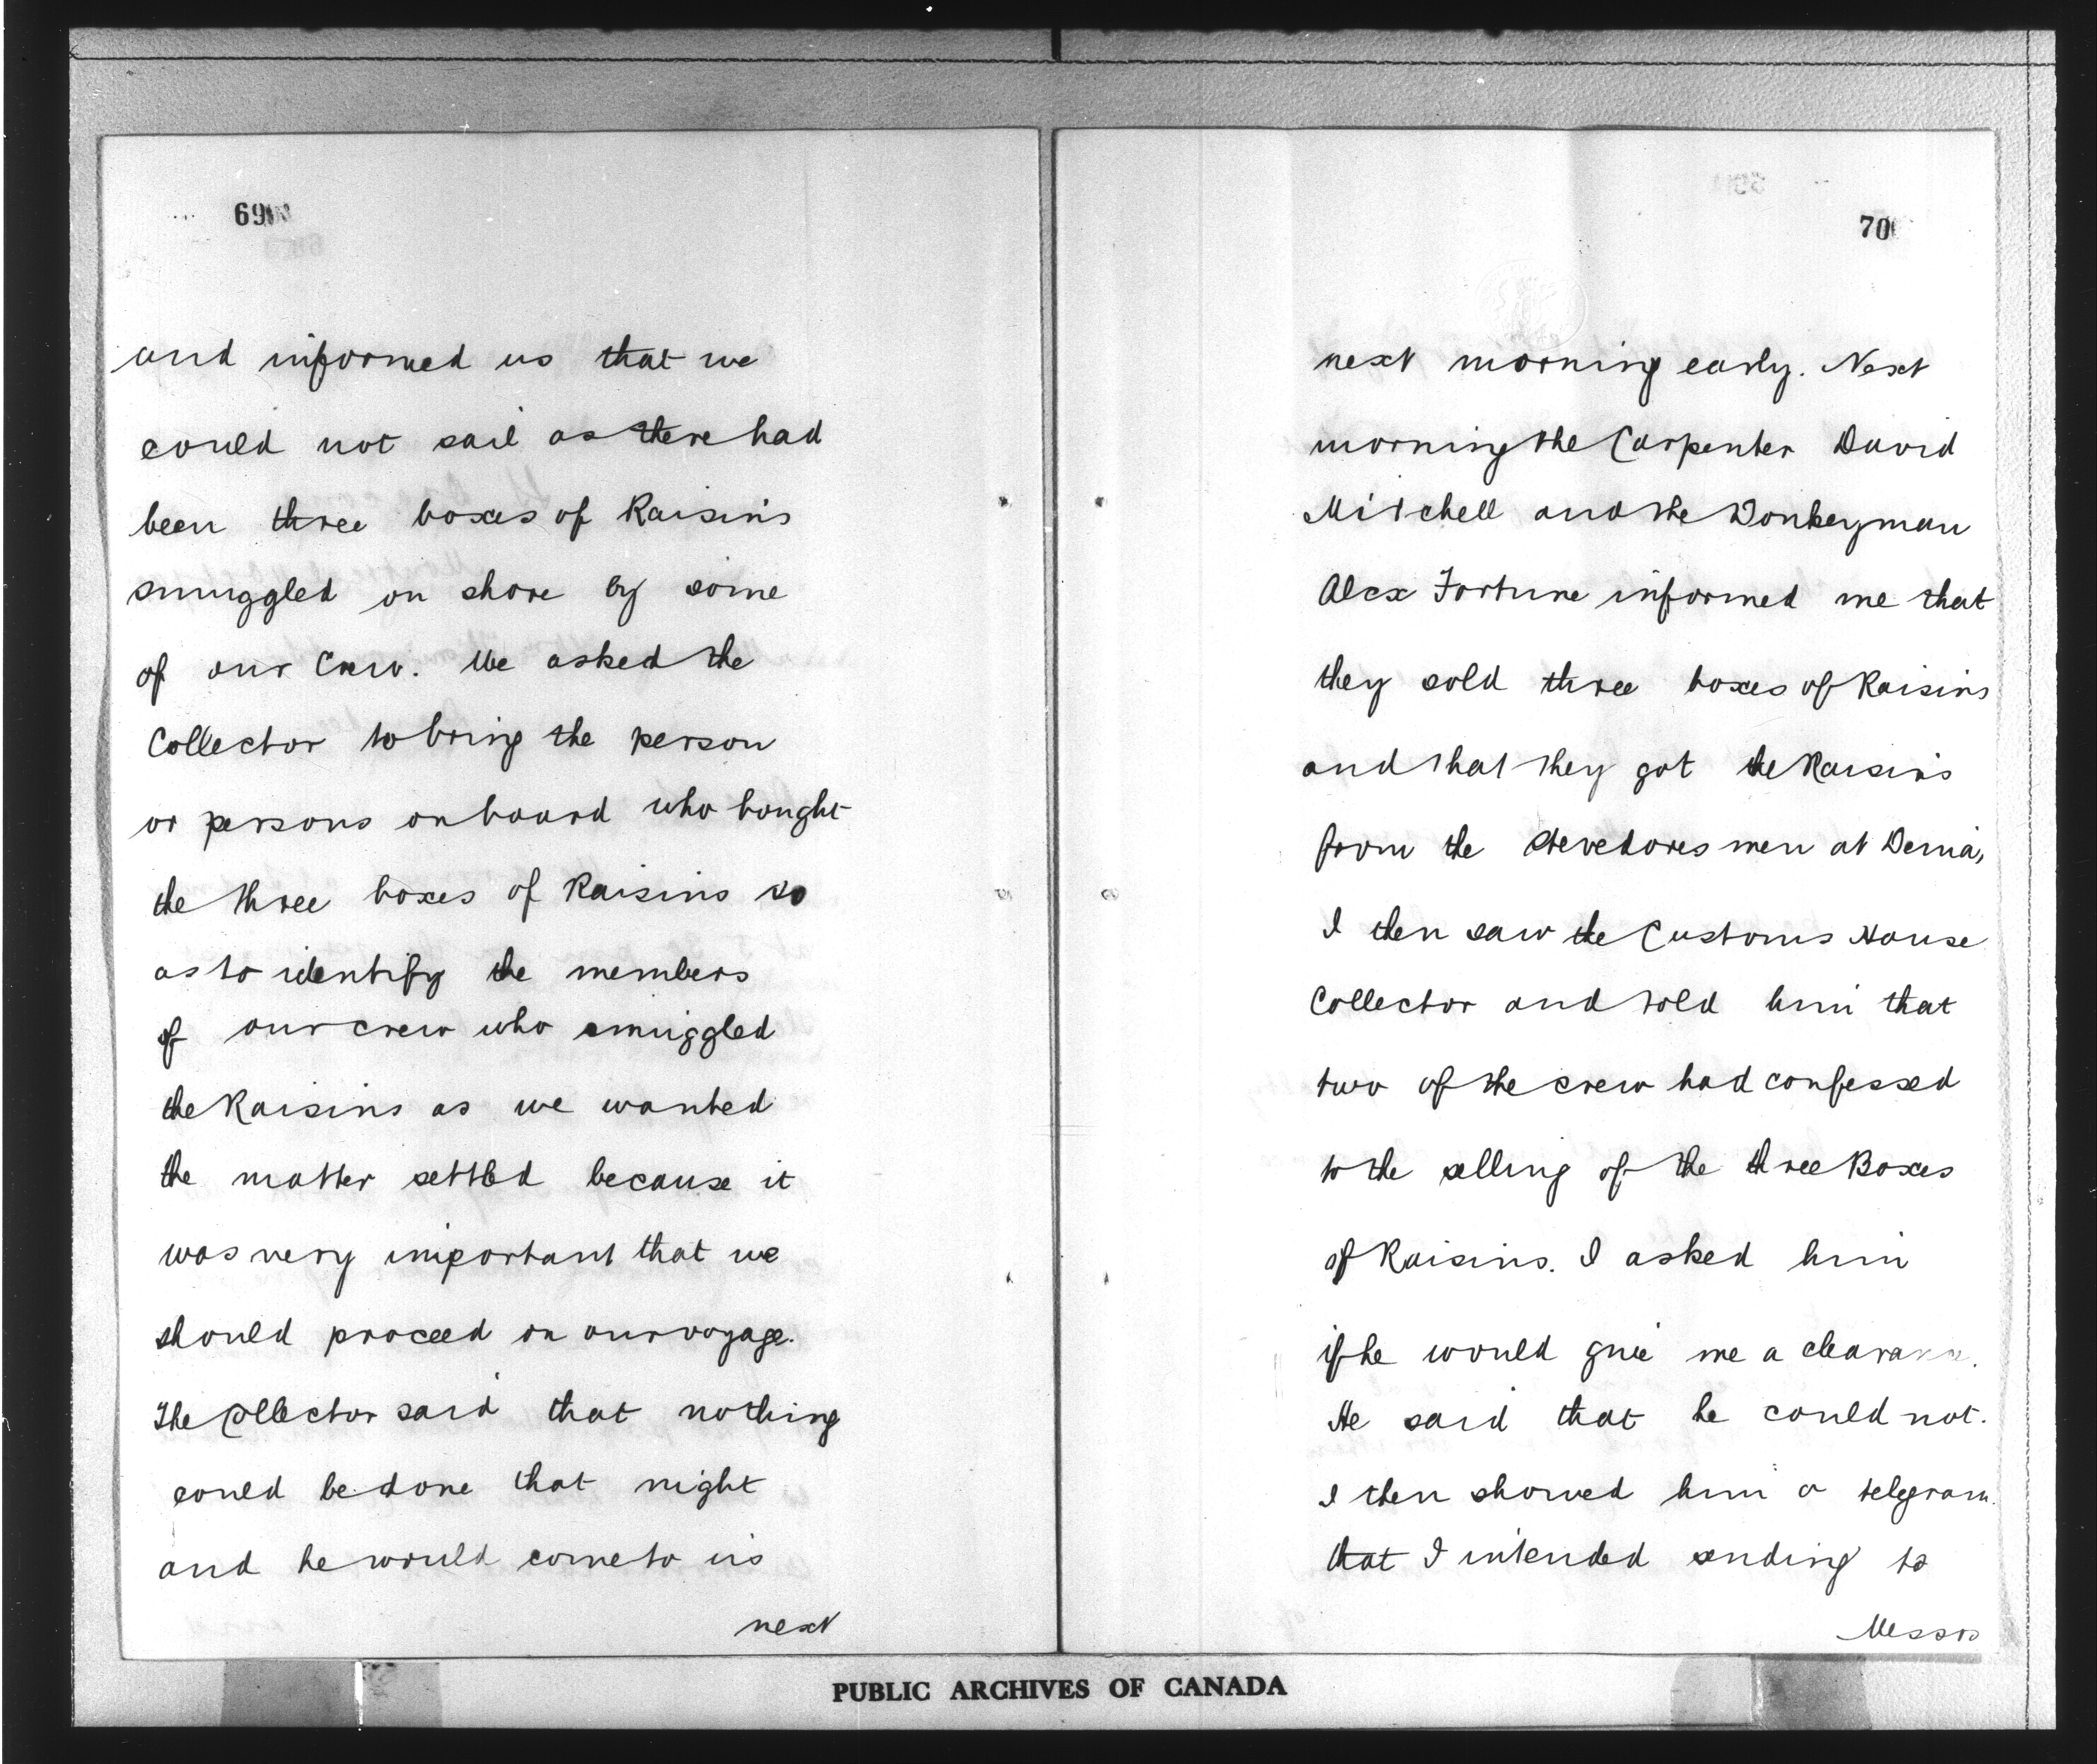 69
and informed us that we
could not sail as there had
been three boxes of Raisins
smuggled on shore by some
of our Crew. We asked the
Collector to bring the person
or persons on board who bought
the three boxes of Raisins so
as to identify the members
of our crew who smuggled
the Raisins as we wanted
the matter settled because it
was very important that we
should proceed on our voyage.
The Collector said that nothing
could be done that night
and he would come to us
next
70
next morning early. Next
morning the Carpenter David
Mitchell and the Donkeyman
Alex Fortune informed me that
they sold three boxes of Raisins
and that they got the Raisins
from the stevedores men at Denia,
I then saw the Customs House
Collector and told him that
two of the crew had confessed
to the selling of the three Boxes
of Raisins. I asked him
if he would give me a clearance.
He said that he could not.
I then showed him a telegram
that I intended sending to
Messrs
PUBLIC ARCHIVES OF CANADA